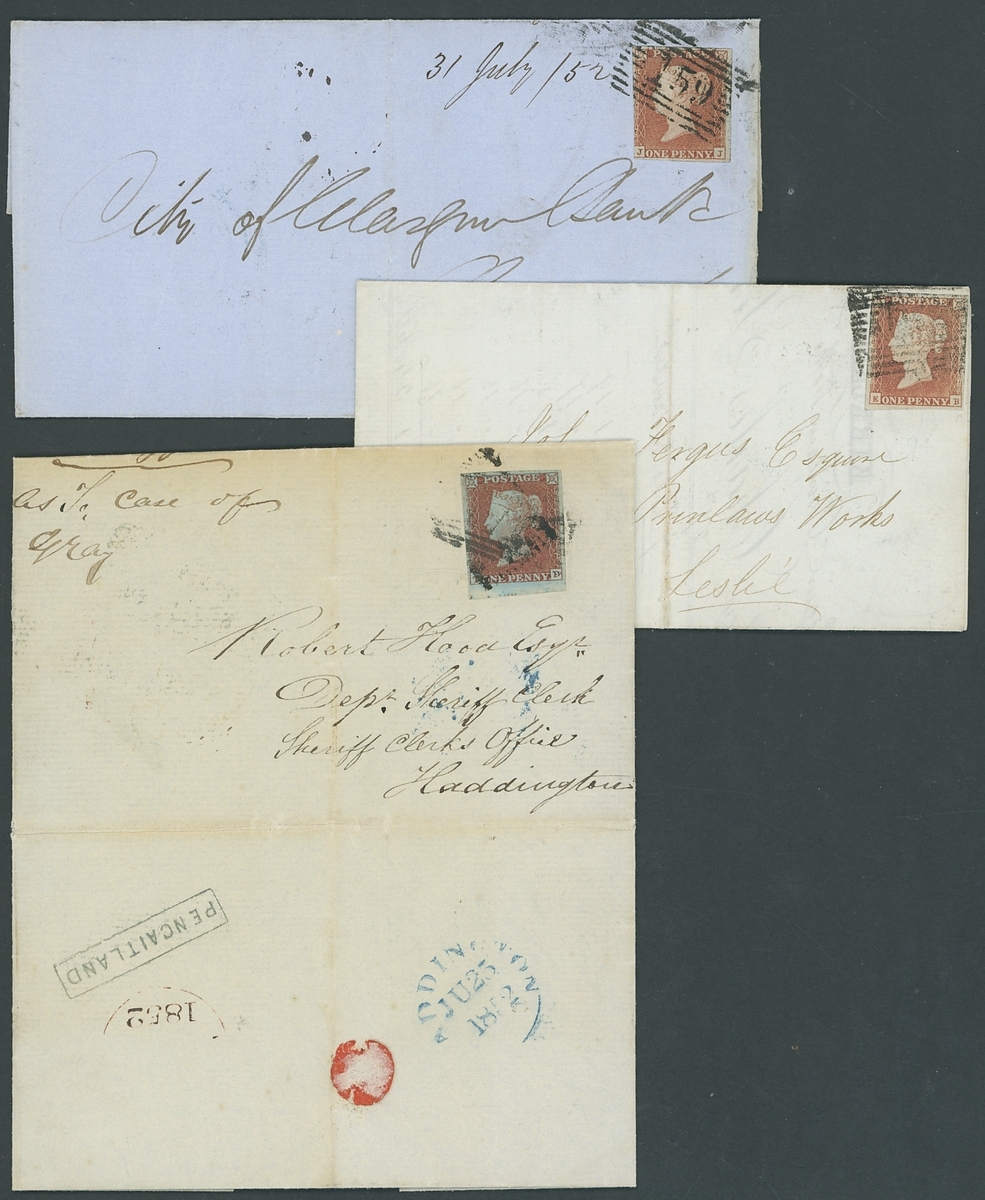 31 July /52
159
J ONE PENNY J
City of Glasgow Bank
POSTAGE
K ONE PENNY B
Fergus Esquire
Prinlaws Works
Leslie
as To case of
Gray
POSTAGE
ONE PENNY D
Robert Hood Esqr
Depr. Sheriff Clerk
Sheriff Clerks Office
Haddington
PENCAITLAND
1852
DDINGTON
JU 25
1852